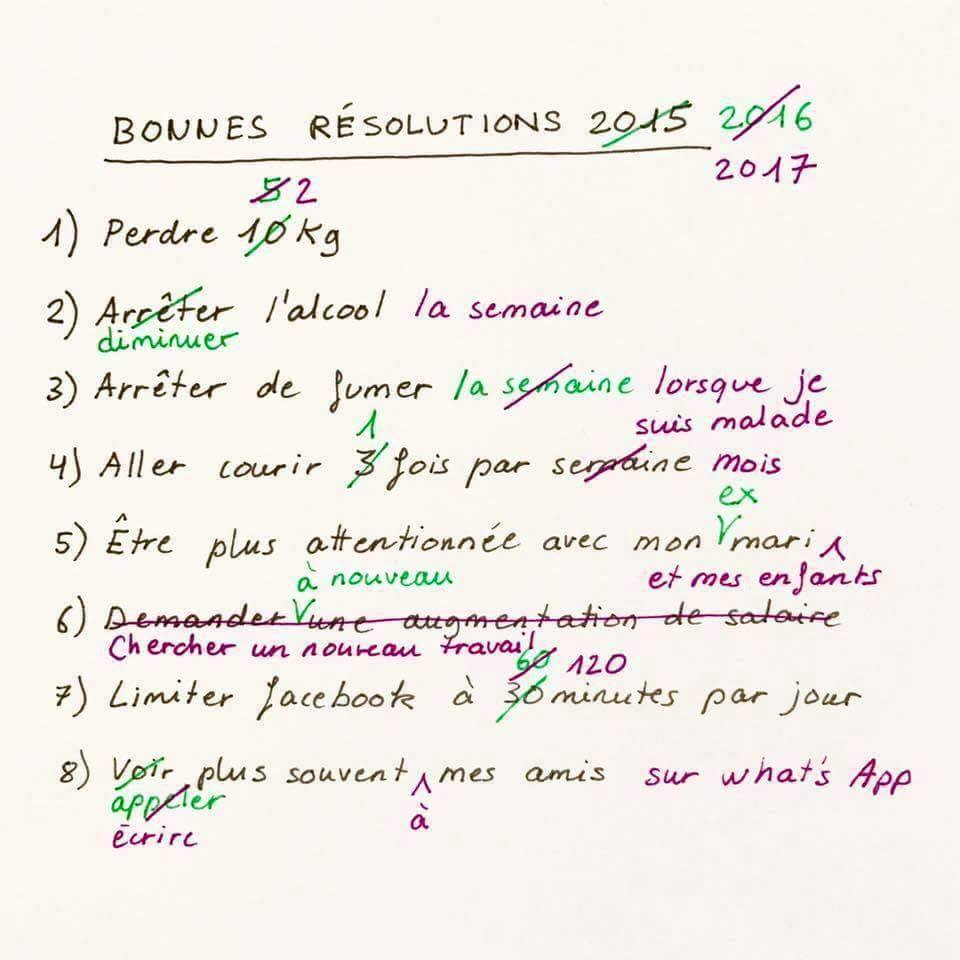 BONNES RÉSOLUTIONS 2015 2016
2017
5 2
1) Perdre 10 kg
2) Arrêter l'alcool la semaine
diminuer
3) Arrêter de fumer la semaine lorsque je
suis malade
1
4) Aller courir 3 fois par semaine mois
ex
5) Être plus attentionnée avec mon mari
à nouveau et mes enfants
6) Demander une augmentation de salaire
Chercher un nouveau travail
60 120
7) Limiter facebook à 30 minutes par jour
8) Voir plus souvent mes amis sur what's App
appeler
à
écrire